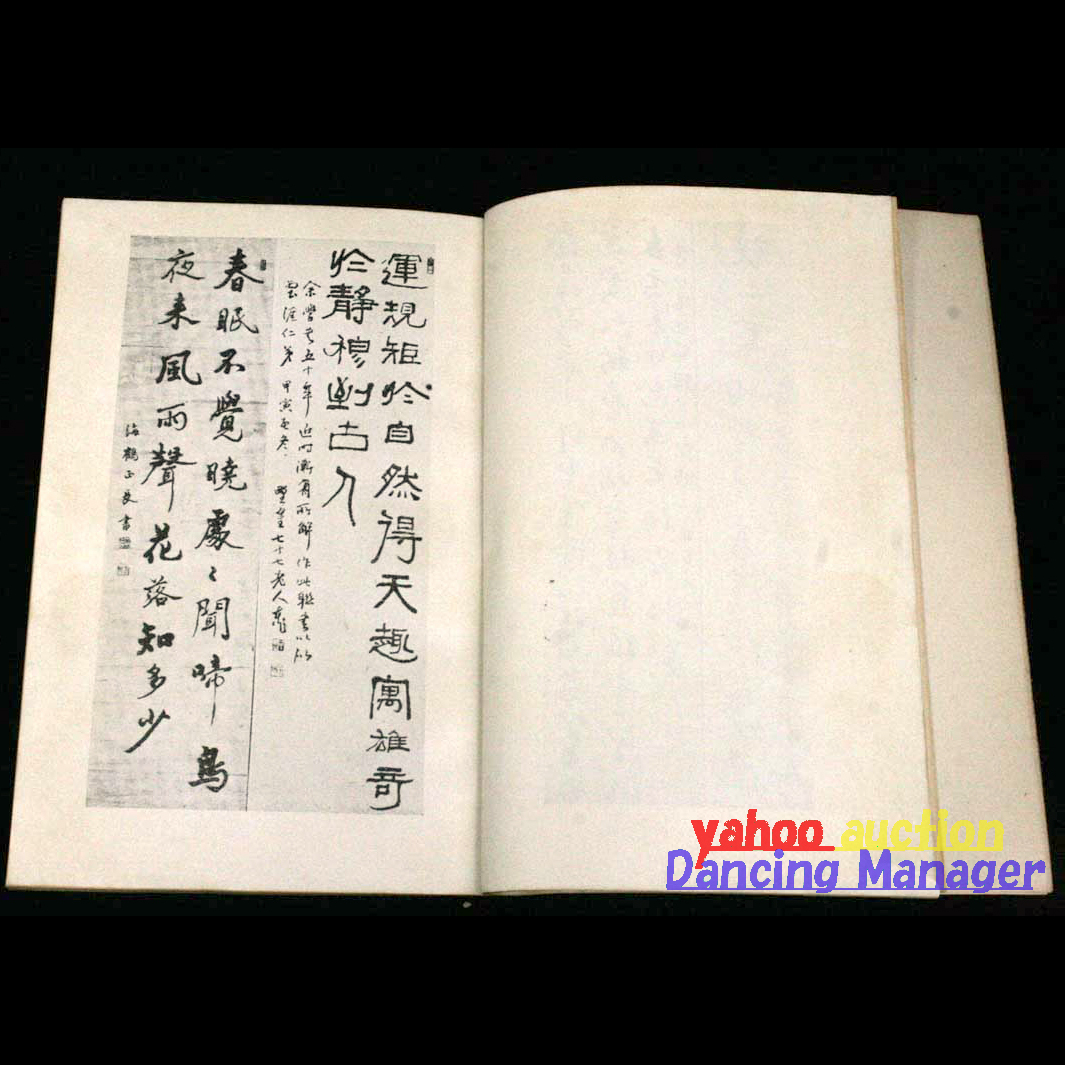 運規矩於自然得天趣寓雄奇
於靜穆到古人
余學書五十年近時漸有所解作此聯書以貽
雲崖仁弟 甲寅孟冬 七十七老人
春眠不覺曉處〻聞啼鳥
夜来風雨聲花落知多少
鶴正長書
yahoo auction
Dancing Manager